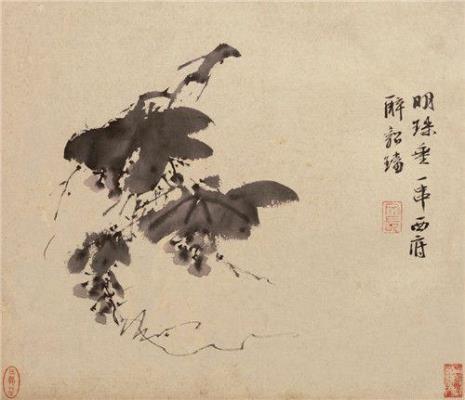 明珠垂一串西府
醉貂璫